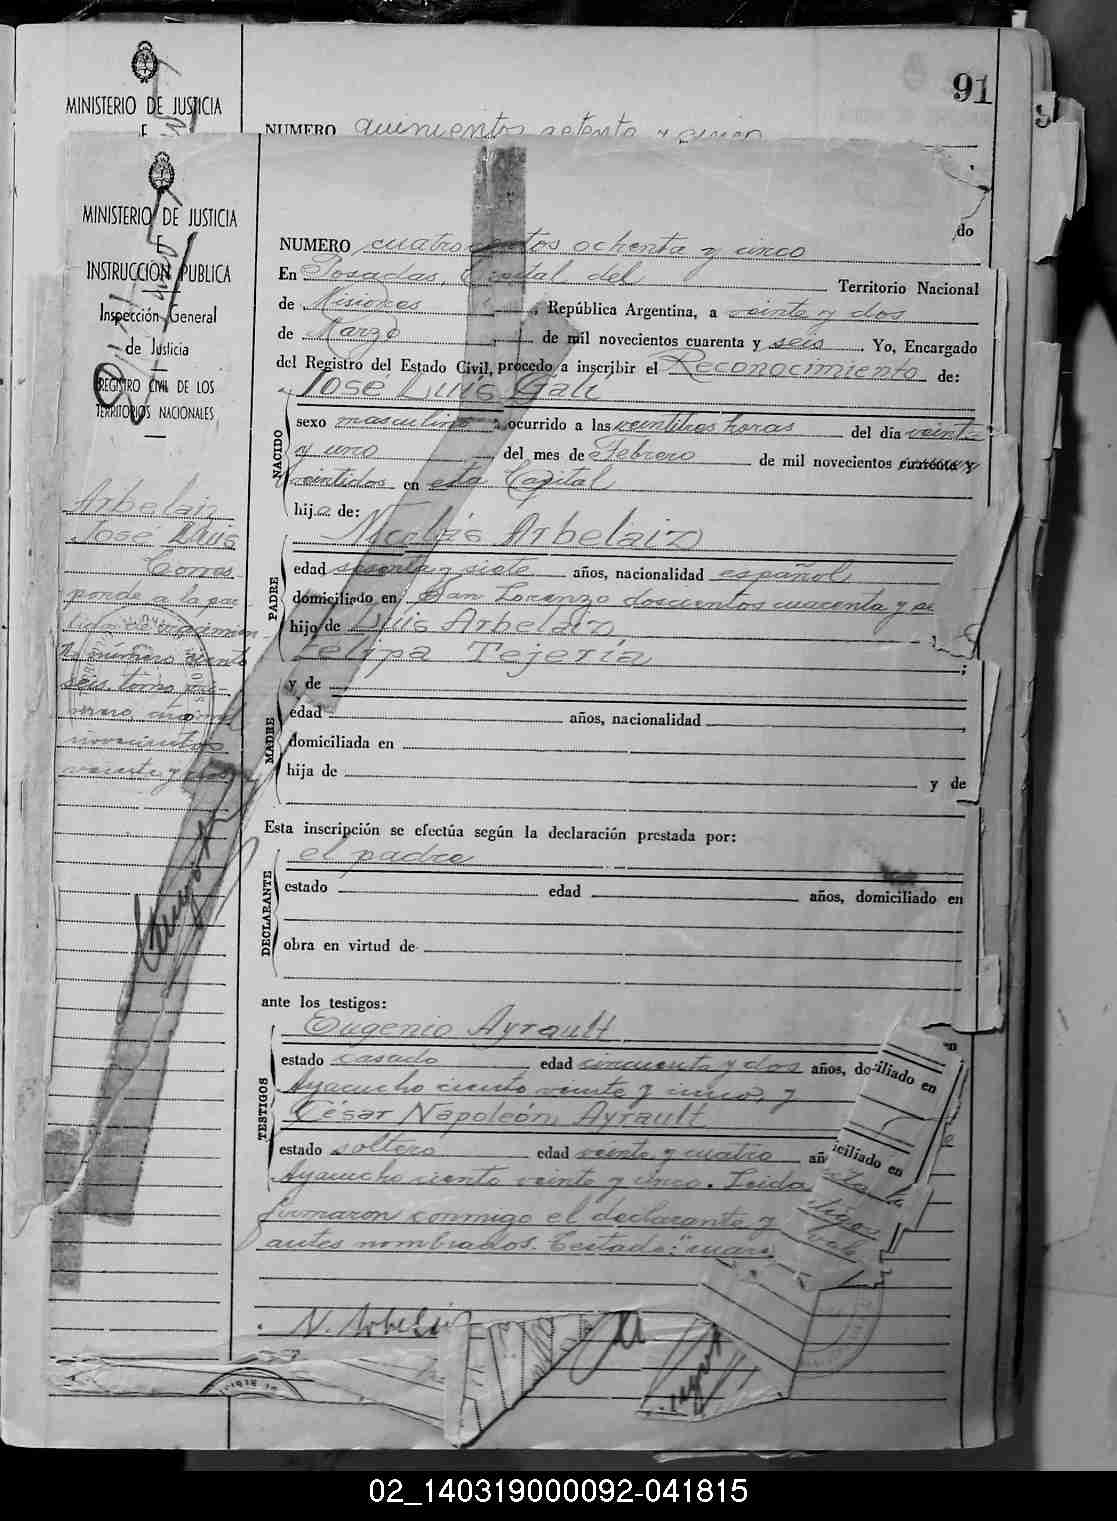 91
MINISTERIO DE JUSTICIA
E
NUMERO quinientos setenta y cinco
MINISTERIO DE JUSTICIA
E
INSTRUCCIÓN PUBLICA
Inspección General
de Justicia
REGISTRO CIVIL DE LOS
TERRITORIOS NACIONALES
Arbelaiz
José Luis
Corres-
ponde a la par-
tida de nacimien-
to número ciento
seis, tomo pri-
mero, año mil
novecientos
veinte y dos
do
NUMERO cuatrocientos ochenta y cinco
En Posadas, Capital del Territorio Nacional
de Misiones, República Argentina, a veinte y dos
de Marzo de mil novecientos cuarenta y seis. Yo, Encargado
del Registro del Estado Civil, procedo a inscribir el Reconocimiento de:
José Luis Gali
NACIDO
sexo masculino ocurrido a las veintitres horas del día veinte
y uno del mes de Febrero de mil novecientos cuarenta y
veintidos en esta Capital
hijo de:
Nicolás Arbelaiz
PADRE
edad sesenta y siete años, nacionalidad español
domiciliado en San Lorenzo doscientos cuarenta y
hijo de Luis Arbelaiz
Felipa Tejería
;
y de
MADRE
edad años, nacionalidad
domiciliada en
hija de y de
Esta inscripción se efectúa según la declaración prestada por:
el padre
DECLARANTE
estado edad años, domiciliado en
obra en virtud de
ante los testigos:
Eugenio Ayrault
TESTIGOS
estado casado edad cincuenta y dos años, do ciliado en
Ayacucho ciento veinte y cinco, y
César Napoleón Ayrault
estado soltero edad veinte y cuatro añ iciliado en
Ayacucho ciento veinte y cinco. Leida
firmaron conmigo el declarante y
antes nombrados. Testado: "cuar
vale
N. Arbelaiz
02_140319000092-041815